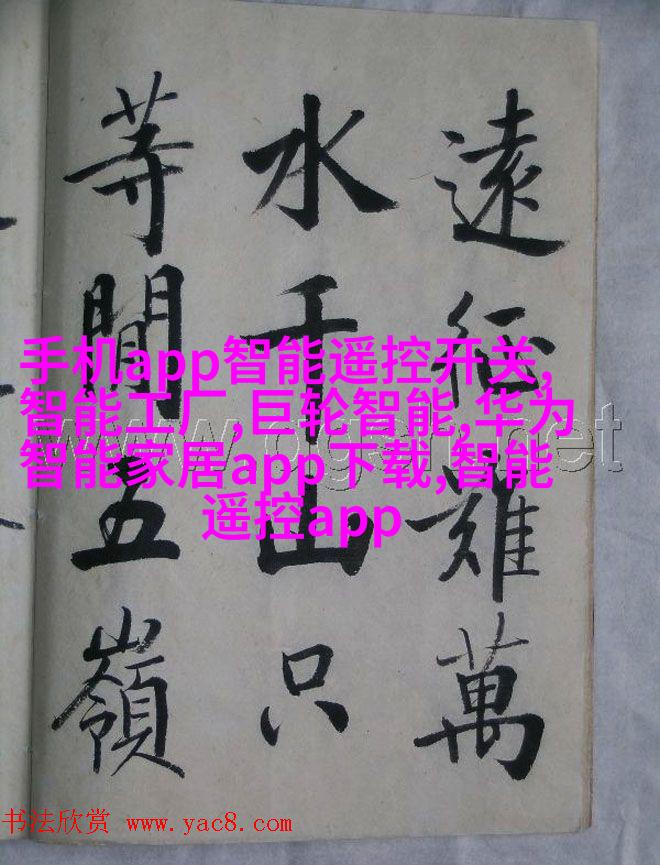 遠征難萬
水千山只
等間五嶺
手机app智能遥控开关,
智能工厂,巨轮智能,华为
智能家居app下载,智能
遥控app
书法欣赏 www.yac8.com